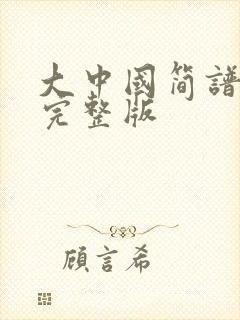 大中國简譜
完整版
顧言希